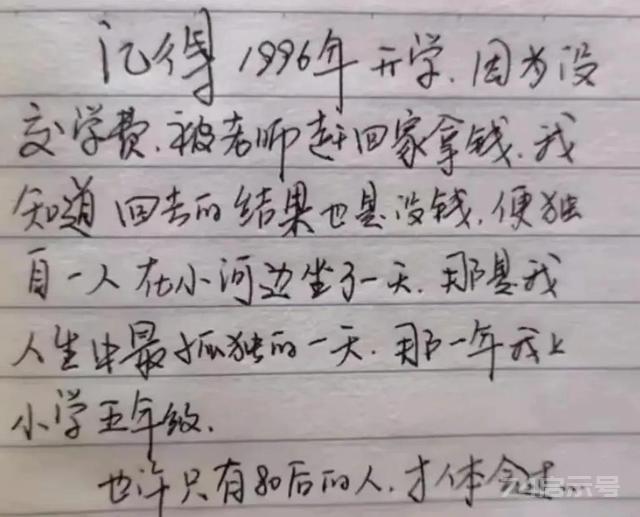 记得1996年开学.因为没
交学费.被老师赶回家拿钱.我
知道回去的结果也是没钱.便独
自一人在小河边坐了一天.那是我
人生中最孤独的一天.那一年我上
小学五年级.
也许只有80后的人.才体会
官示号